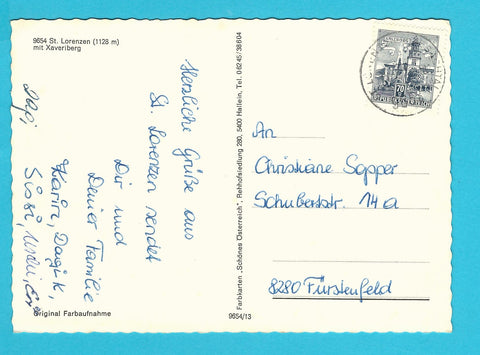 9654 St. Lorenzen (1128 m)
mit Xaveriberg
Herzliche Grüße aus
St. Lorenzen sendet
Dir und
Deiner Familie
Karin,
Sissi,
Original Farbaufnahme
Farbkarten „Schönes Österreich", Rehhofsiedlung 280, 5400 Hallein, Tel. 06245/38604
9654/13
70
REPUBLIK ÖSTERREICH
An
Christiane Sapper
Schubertstr. 14a
8280 Fürstenfeld